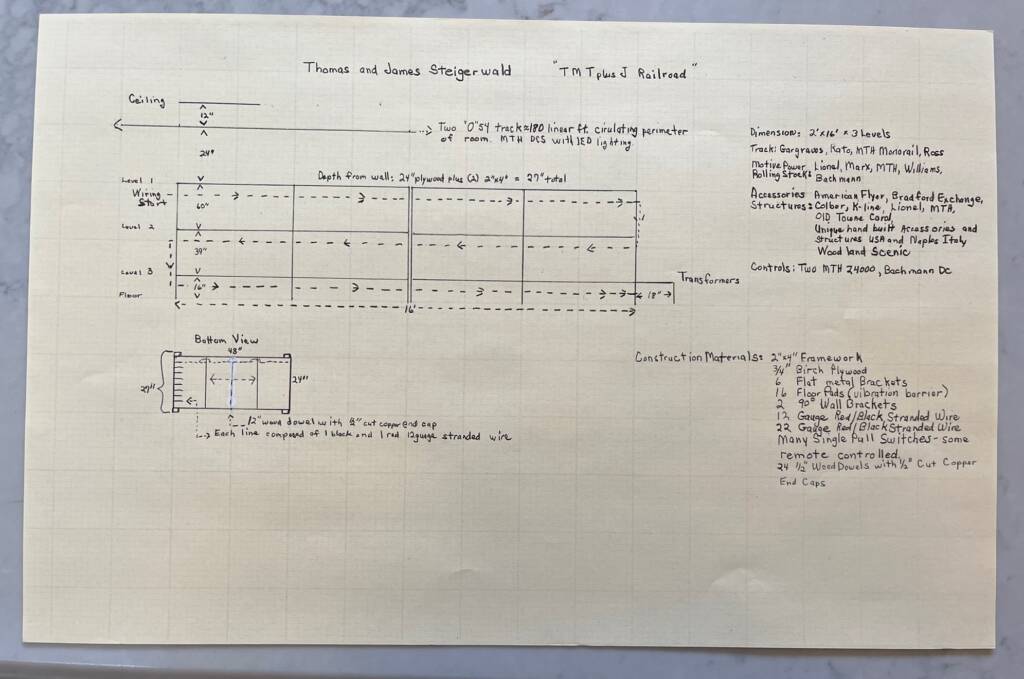 Thomas and James Steigerwald "TMTplus J Railroad"
Ceiling
12"
Two "O"54 track ≈180 linear ft. cirulating perimeter
of room. MTH DCS with LED lighting.
24"
Level 1
Depth from wall: 24" plywood plus (2) 2"x4" = 27" total
Wiring
Start
60"
Level 2
39"
Level 3
16"
Floor
18"
Transformers
16'
Dimension: 2'x16' x 3 Levels
Track: Gargraves, Kato, MTH Monorail, Ross
Motive Power Lionel, Marx, MTH, Williams,
Rolling Stock: Bachmann
Accessories American Flyer, Bradford Exchange,
Structures: Colber, K-line, Lionel, MTH,
Old Towne Coral,
Unique hand built Accessories and
Structures USA and Naples Italy
Woodland Scenic
Controls: Two MTH Z4000, Bachmann DC
Bottom View
48"
27"
24"
12" wood dowel with ½" cut copper end cap
Each line composed of 1 black and 1 red 12guage stranded wire
Construction Materials: 2"x4" Framework
¾" Birch Plywood
6 Flat metal Brackets
16 Floor Pads (vibration barrier)
2 90° Wall Brackets
12 Gauge Red/Black Stranded Wire
22 Gauge Red/Black Stranded Wire
Many Single Pull Switches - some
remote controlled.
24 ½" Wood Dowels with ½" Cut Copper
End Caps